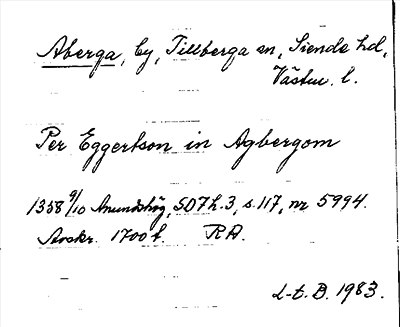 Aberga, by, Tillberga sn, Siende hd,
Västm. l.
Per Eggertson in Agbergom
1358 9/10 Anundshög, SD7h.3, s.117, nr 5994.
Avskr. 1700 t. RA.
L-t. B. 1983.